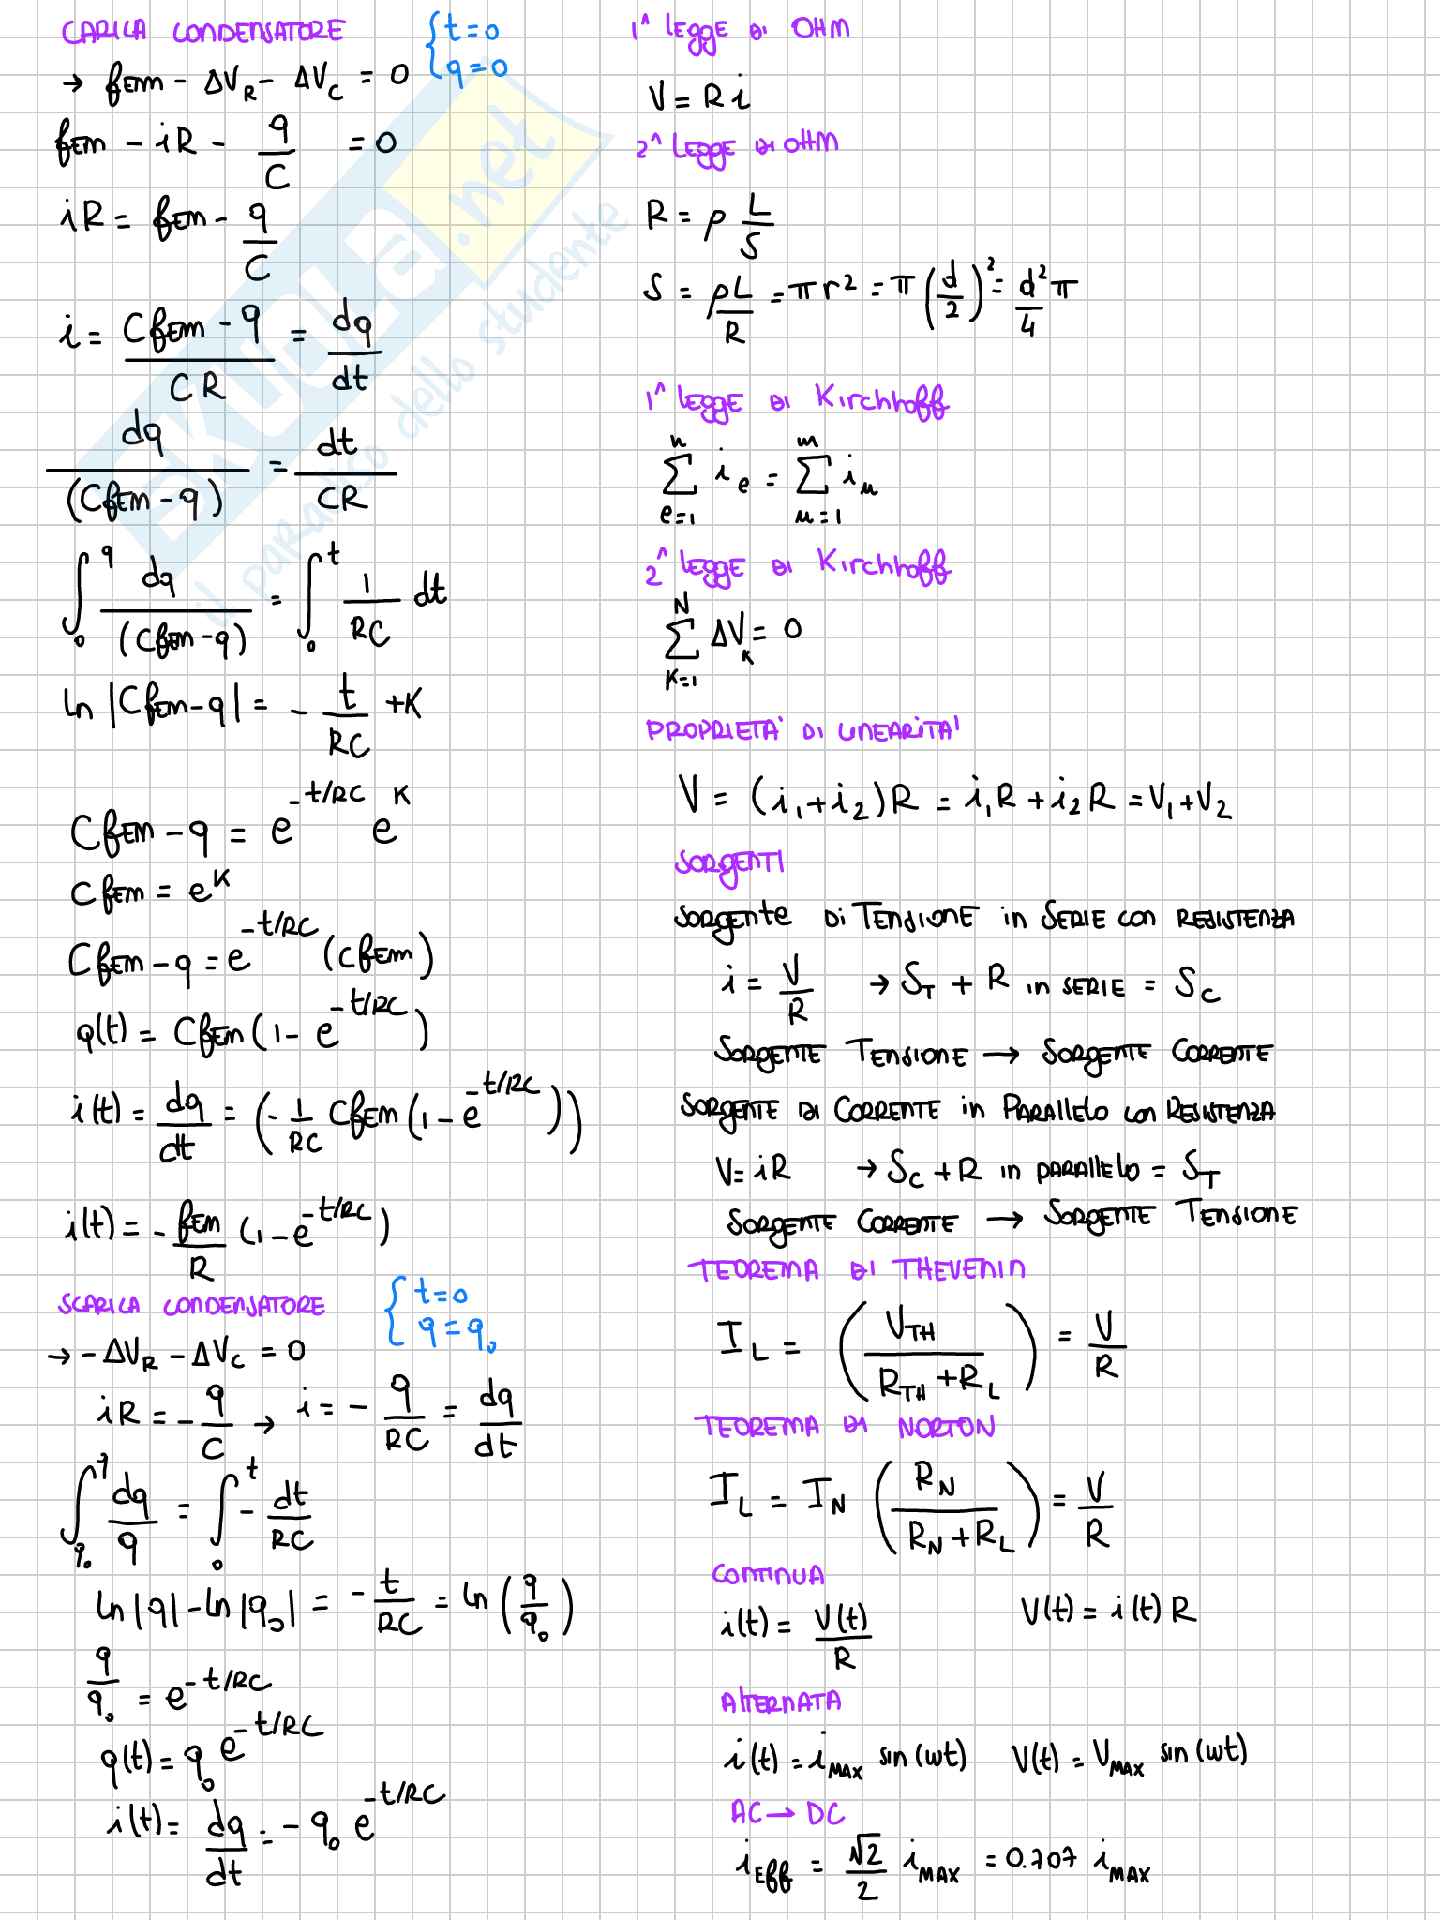 CARICA CONDENSATORE { t = 0
q = 0
→ fem - ΔV_R - ΔV_C = 0
fem - iR - q/C = 0
iR = fem - q/C
i = (C fem - q)/(CR) = dq/dt
dq/(C fem - q) = dt/(CR)
∫_0^q dq/(C fem - q) = ∫_0^t 1/(RC) dt
ln |C fem - q| = - t/(RC) + K
C fem - q = e^(-t/RC) e^K
C fem = e^K
C fem - q = e^(-t/RC) (C fem)
q(t) = C fem (1 - e^(-t/RC))
i(t) = dq/dt = (- 1/(RC) C fem (1 - e^(-t/RC)))
i(t) = - fem/R (1 - e^(-t/RC))
SCARICA CONDENSATORE { t = 0
q = q_0
→ - ΔV_R - ΔV_C = 0
iR = - q/C → i = - q/(RC) = dq/dt
∫_q0^q dq/q = ∫_0^t - dt/(RC)
ln |q| - ln |q_0| = - t/(RC) = ln (q/q_0)
q/q_0 = e^(-t/RC)
q(t) = q_0 e^(-t/RC)
i(t) = dq/dt = - q_0 e^(-t/RC)
1^ LEGGE DI OHM
V = R i
2^ LEGGE DI OHM
R = ρ L/S
S = ρL/R = π r² = π (d/2)² = d²/4 π
1^ LEGGE DI Kirchhoff
∑_{e=1}^{n} i_e = ∑_{u=1}^{m} i_u
2^ LEGGE DI Kirchhoff
∑_{K=1}^{N} ΔV_K = 0
PROPRIETA' DI LINEARITA'
V = (i_1 + i_2) R = i_1 R + i_2 R = V_1 + V_2
SORGENTI
SORGENTE DI TENSIONE in SERIE con RESISTENZA
i = V/R → S_T + R in SERIE = S_C
SORGENTE TENSIONE → SORGENTE CORRENTE
SORGENTE DI CORRENTE in PARALLELO con RESISTENZA
V = iR → S_C + R in PARALLELO = S_T
SORGENTE CORRENTE → SORGENTE TENSIONE
TEOREMA DI THEVENIN
I_L = (V_TH/(R_TH + R_L)) = V/R
TEOREMA DI NORTON
I_L = I_N (R_N/(R_N + R_L)) = V/R
CONTINUA
i(t) = V(t)/R V(t) = i(t) R
ALTERNATA
i(t) = i_MAX sin(ωt) V(t) = V_MAX sin(ωt)
AC → DC
i_Eff = √2/2 i_MAX = 0.707 i_MAX
SKUOLA.net
il paradiso dello studente